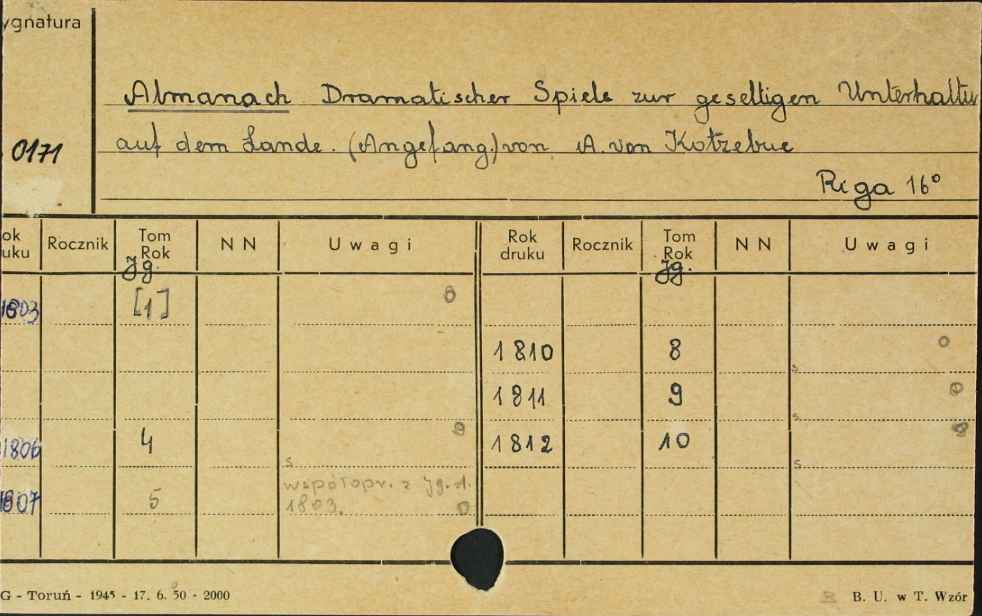 ygnatura
Almanach Dramatischer Spiele zur geselligen Unterhaltu
0171 auf dem Lande. (Angefang.) von A. von Kotzebue
Riga 16°
ok uku Rocznik Tom Rok NN Uwagi Rok druku Rocznik Tom Rok NN Uwagi
Jg. Jg.
1803 [1] 0
1810 8 0
s
1811 9 0
s
1806 4 0 1812 10
s s
1807 5 współopr. z Jg. d.
1803. 0
G - Toruń - 1945 - 17. 6. 50 - 2000 B. U. w T. Wzór